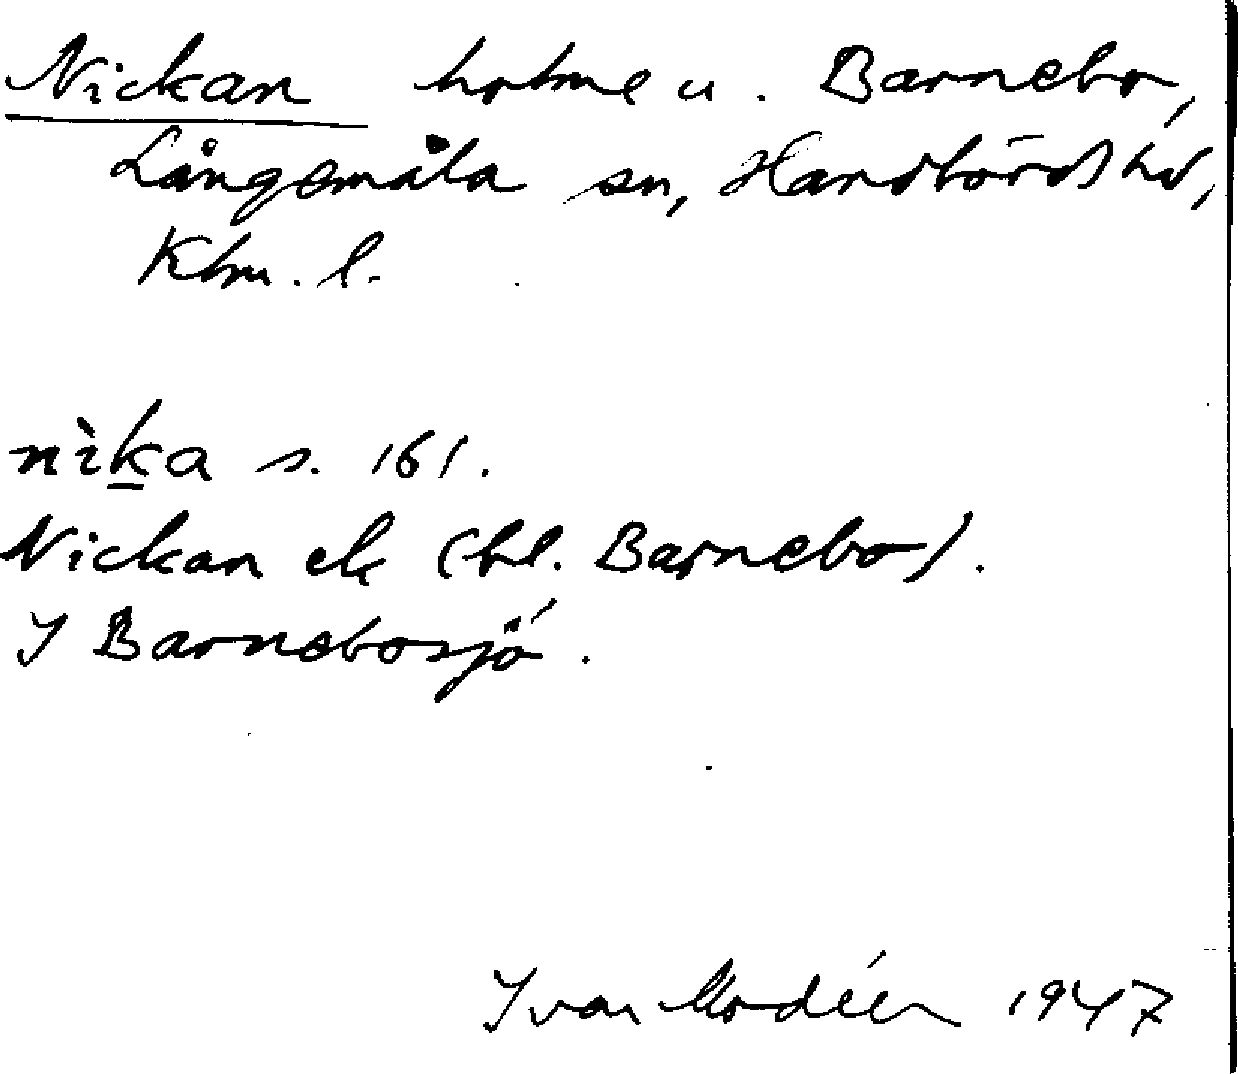 Nickan holme u. Barnebo,
Långemåla sn, Handbörds hd,
Klm. l.
nìka s. 161.
Nickan ek (bl. Barnebo).
I Barnebosjö.
Ivar Modéer 1947